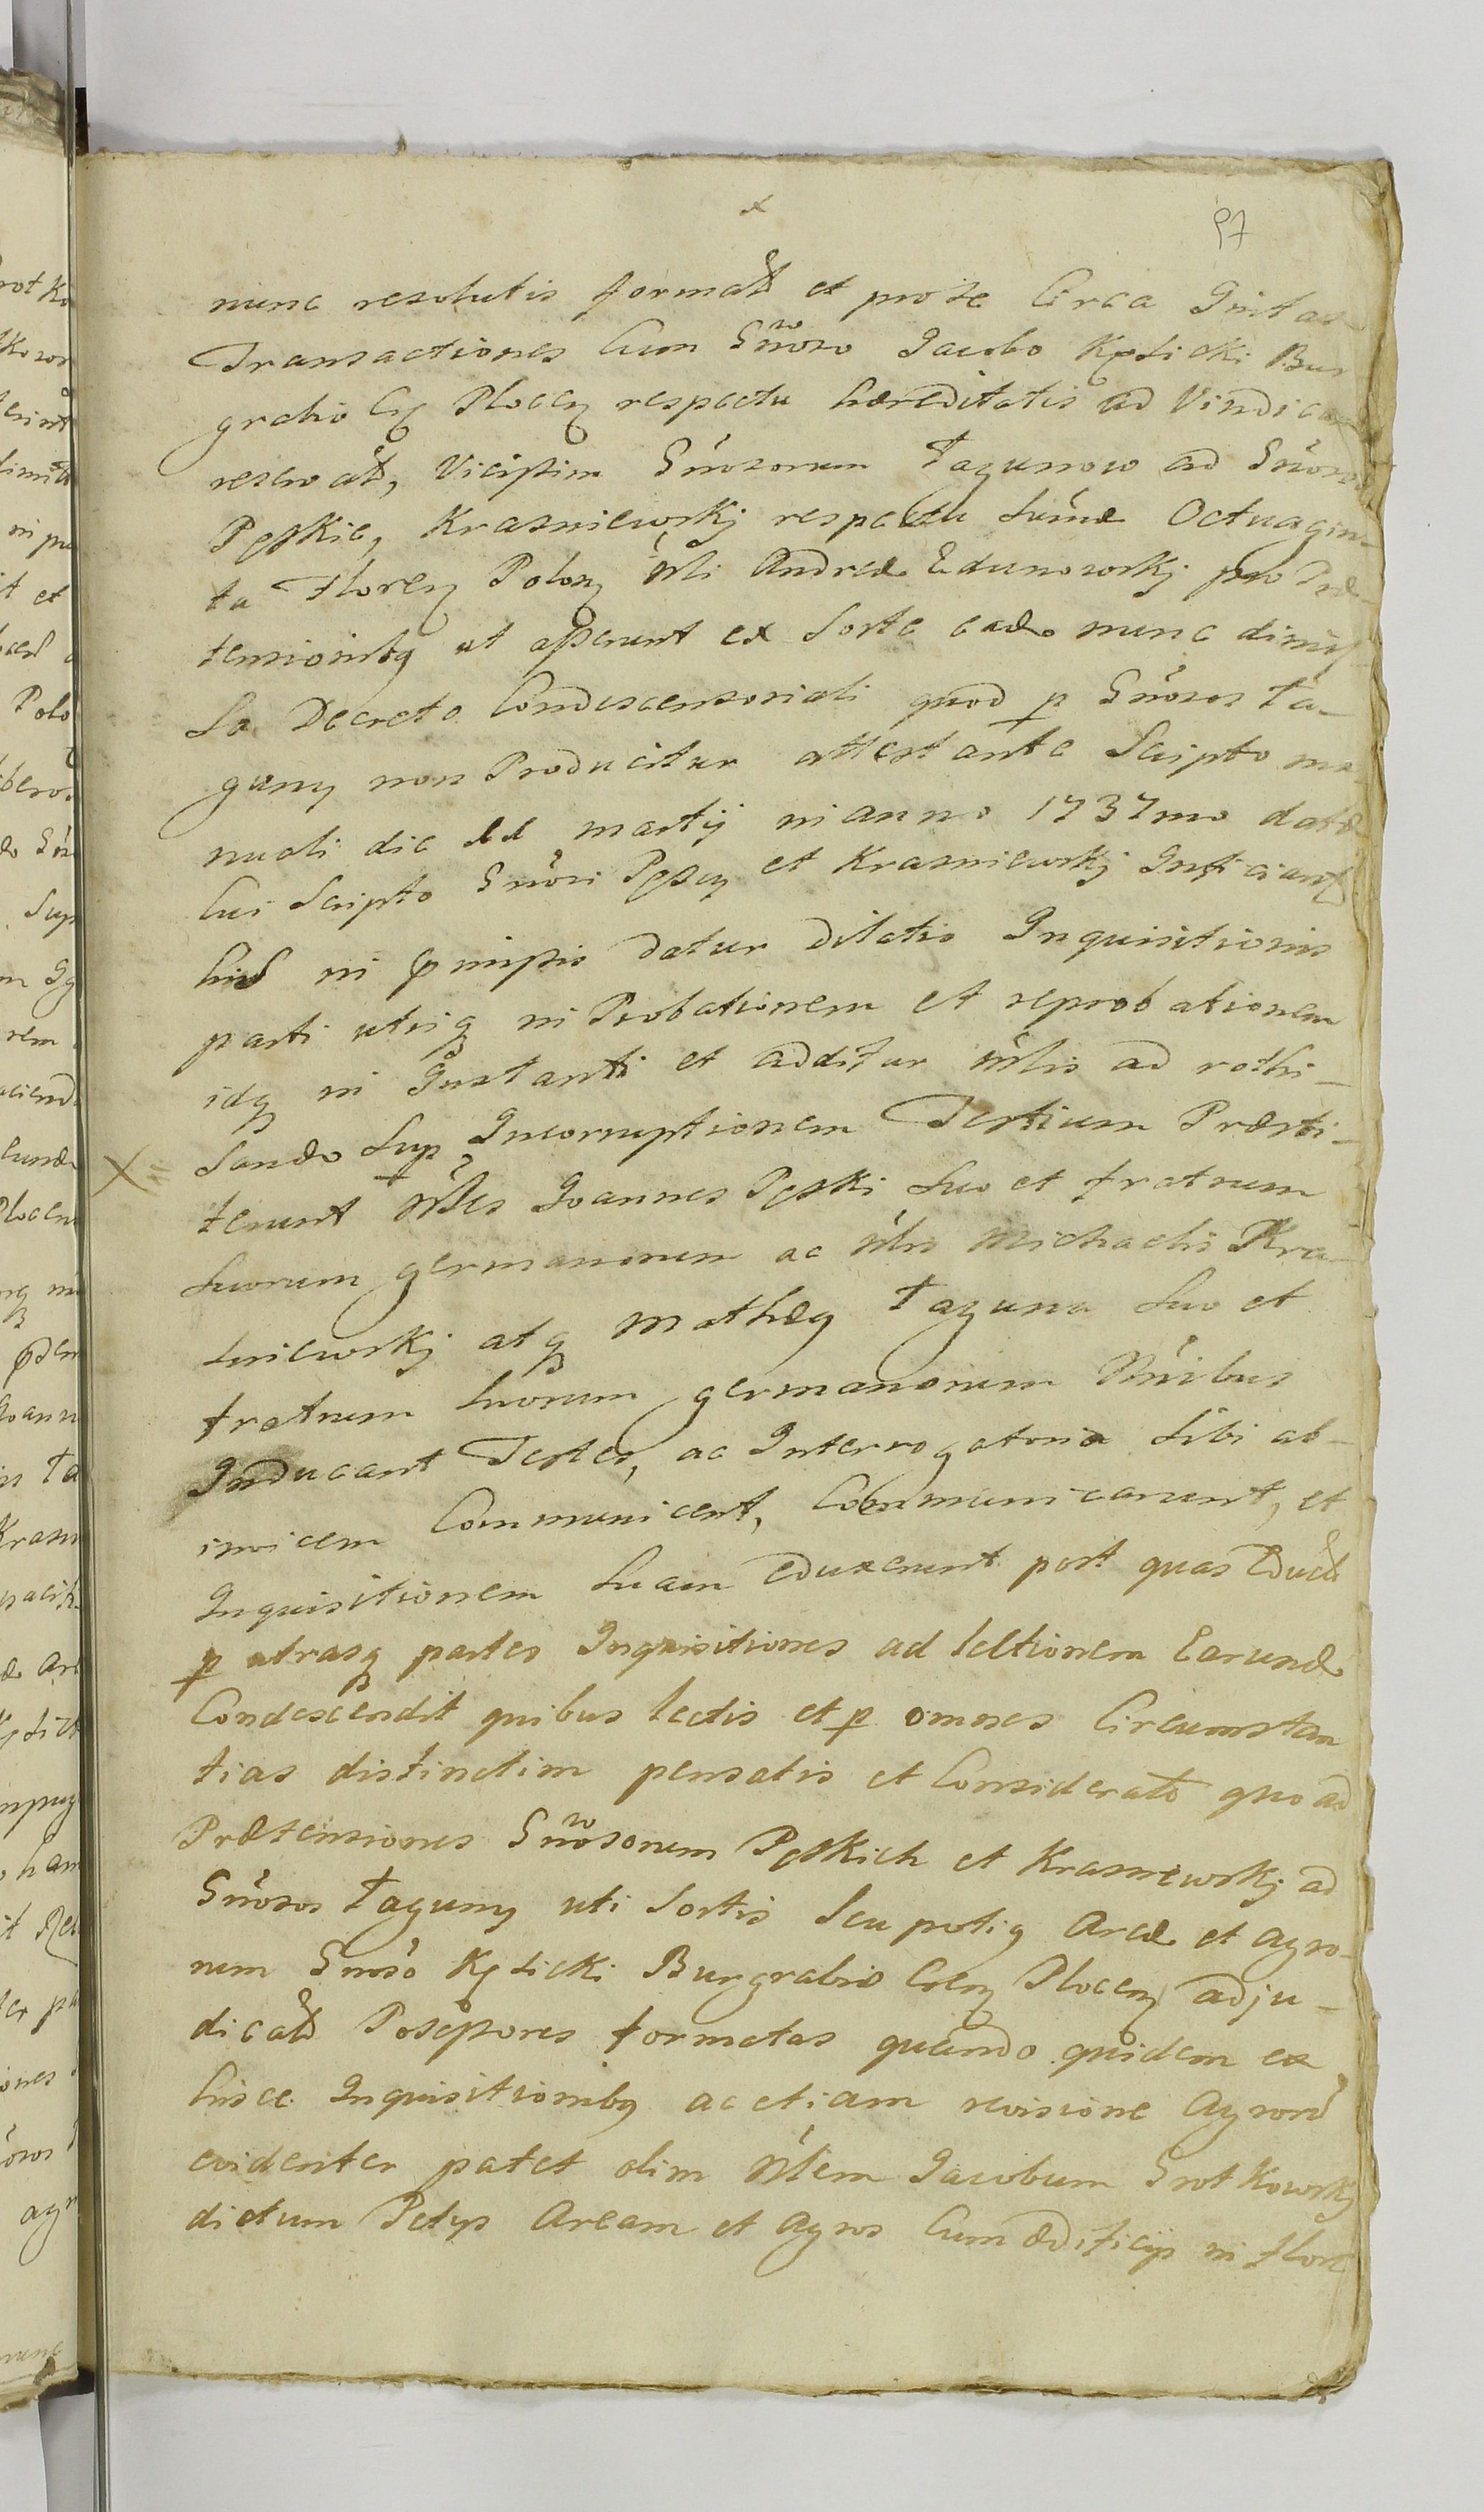 x
97
nunc resolutis format et prose Circa Initas
Transactiones Cum Gnroso Jacobo Kęsicki Bur
grabio Cq Plocen respectu hæreditatis ad Vindican
reservat, Vicissim Gnrosorum Łagunow ad Gnrosos
Pęskie, Krasniewskj respectu sumæ Octuagin-
ta Floren Polon Nbli Andreæ Edunowskj pro Præ-
tensionibq ut asserunt ex Sorte eado nunc dimis-
so Decreto Condescensoriali quod p Gnrosos Ła-
guny non Producitur attestante Scripto ma-
nuali die martij in anno 1737mo dato
Cui Scripto Gnrosi Pęscy et Krasniewskj Inficiant
in pmissis datur dilatio Inquisitionis
parti utriq in Probationem et reprobationem
idq in Instanti et additur Nblis ad rothi-
sando Sup Incorruptionem Testium Præsti-
terunt Nbles Joannes Pęski suo et fratrum
suorum germanorum ac Nblis Michaelis Kra-
sniewskj atq Mathæq Łaguna suo et
fratrum suorum germanorum Nnibus
Inducant Testes, ac Interrogatoria sibi ab-
invicem Communicent, Communicarunt, et
Inquisitionem suam eduxerunt post quas Educt
p utrasq partes Inquisitiones ad lectionem Earund
Condescendit quibus lectis et p omnes Circumstan
tias distinctim pensatis et Considerats quoad
Prætensiones Gnrosorum Pęskich et Krasnewskj ad
Gnrosos Łaguny uti Sortis seu potiq Areæ et agro-
rum Gnroso Kęsicki Burgrabio Cren Plocen adju-
dicats Posessores formatas quando quidem ex
hisce Inquisitionibq ac etiam revisione Agrorū
evidenter patet olim Nblem Jacobum Grotkowskj
dictum Petys Aream et Agros Cum ædificijs in flore